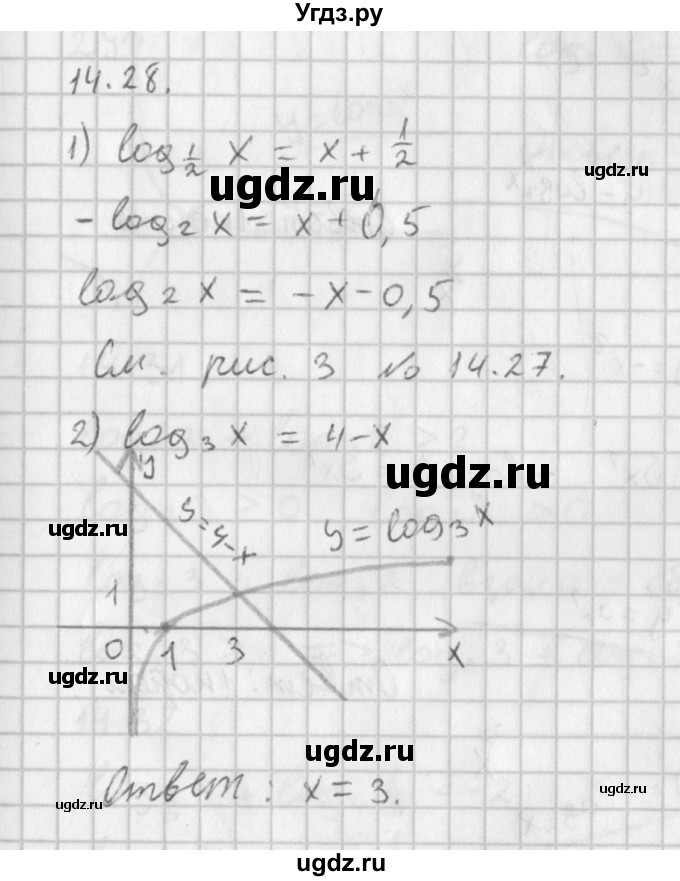 Угдз.ру
14.28.
1) log 1/2 x = x + 1/2
ugdz.ru
ugdz.ru
- log 2 x = x + 0,5
log 2 x = - x - 0,5
См. рис. 3 № 14.27.
2) log 3 x = 4 - x
ugdz.ru
y
ugdz.ru
y = 4 - x
y = log 3 x
1
0 1 3 x
ugdz.ru
Ответ: x = 3.
ugdz.ru
ugdz.ru
ugdz.ru
ugdz.ru